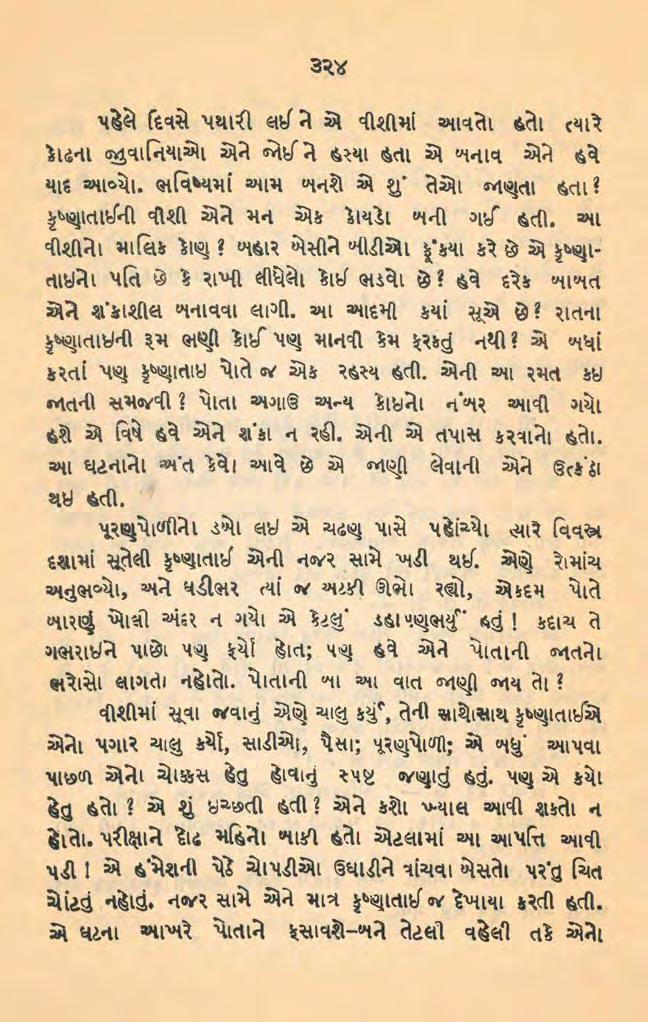 ૩૨૪
પહેલે દિવસે પથારી લઈ ને એ વીશીમાં આવતો હતો ત્યારે
કોઢના જુવાનિયાઓ એને જોઈ ને હસ્યા હતા એ બનાવ એને હવે
યાદ આવ્યો. ભવિષ્યમાં આમ બનશે એ શું તેઓ જાણતા હતા ?
કૃષ્ણાતાઈની વીશી એને મન એક કોયડો બની ગઈ હતી. આ
વીશીનો માલિક કોણ ? બહાર બેસીને બીડીઓ ફૂંકયા કરે છે એ કૃષ્ણા-
તાઇનો પતિ છે કે રાખી લીધેલો કોઇ ભડવો છે ? હવે દરેક બાબત
એને શંકાશીલ બનાવવા લાગી. આ આદમી કયાં સૂએ છે ? રાતના
કૃષ્ણાતાઇની રૂમ ભણી કોઈ પણ માનવી કેમ ફરકતું નથી ? એ બધાં
કરતાં પણ કૃષ્ણાતાઇ પોતે જ એક રહસ્ય હતી. એની આ રમત કઇ
જાતની સમજવી ? પોતા અગાઉ અન્ય કોઇનો નંબર આવી ગયો
હશે એ વિષે હવે એને શંકા ન રહી. એની એ તપાસ કરવાનો હતો.
આ ઘટનાનો અંત કેવો આવે છે એ જાણી લેવાની એને ઉત્કંઠા
થઇ હતી.
પૂરણપોળીનો ડબો લઇ એ ચઢણ પાસે પહોંચ્યો ત્યારે વિવસ્ત્ર
દશામાં સૂતેલી કૃષ્ણાતાઈ એની નજર સામે ખડી થઈ. એણે રોમાંચ
અનુભવ્યો, અને ઘડીભર ત્યાં જ અટકી ઊભો રહ્યો, એકદમ પોતે
બારણું ખોલી અંદર ન ગયો એ કેટલું ડહાપણભર્યું હતું ! કદાચ તે
ગભરાઇને પાછો પણ ફર્યો હોત; પણ હવે એને પોતાની જાતનો
ભરોસો લાગતો નહોતો. પોતાની બા આ વાત જાણી જાય તો ?
વીશીમાં સૂવા જવાનું એણે ચાલુ કર્યું, તેની સાથોસાથ કૃષ્ણાતાઈએ
એનો પગાર ચાલુ કર્યો, સાડીઓ, પૈસા; પૂરણપોળી; એ બધું આપવા
પાછળ એનો ચોક્કસ હેતુ હોવાનું સ્પષ્ટ જણાતું હતું. પણ એ કયો
હેતુ હતો ? એ શું ઇચ્છતી હતી ? એને કશો ખ્યાલ આવી શકતો ન
હોતો. પરીક્ષાને દોઢ મહિનો બાકી હતો એટલામાં આ આપત્તિ આવી
પડી ! એ હંમેશની પેઠે ચોપડીઓ ઉઘાડીને વાંચવા બેસતો પરંતુ ચિત
ચોંટતું નહોતું. નજર સામે એને માત્ર કૃષ્ણાતાઈ જ દેખાયા કરતી હતી.
એ ઘટના આખરે પોતાને ફસાવશે–બને તેટલી વહેલી તકે એનો